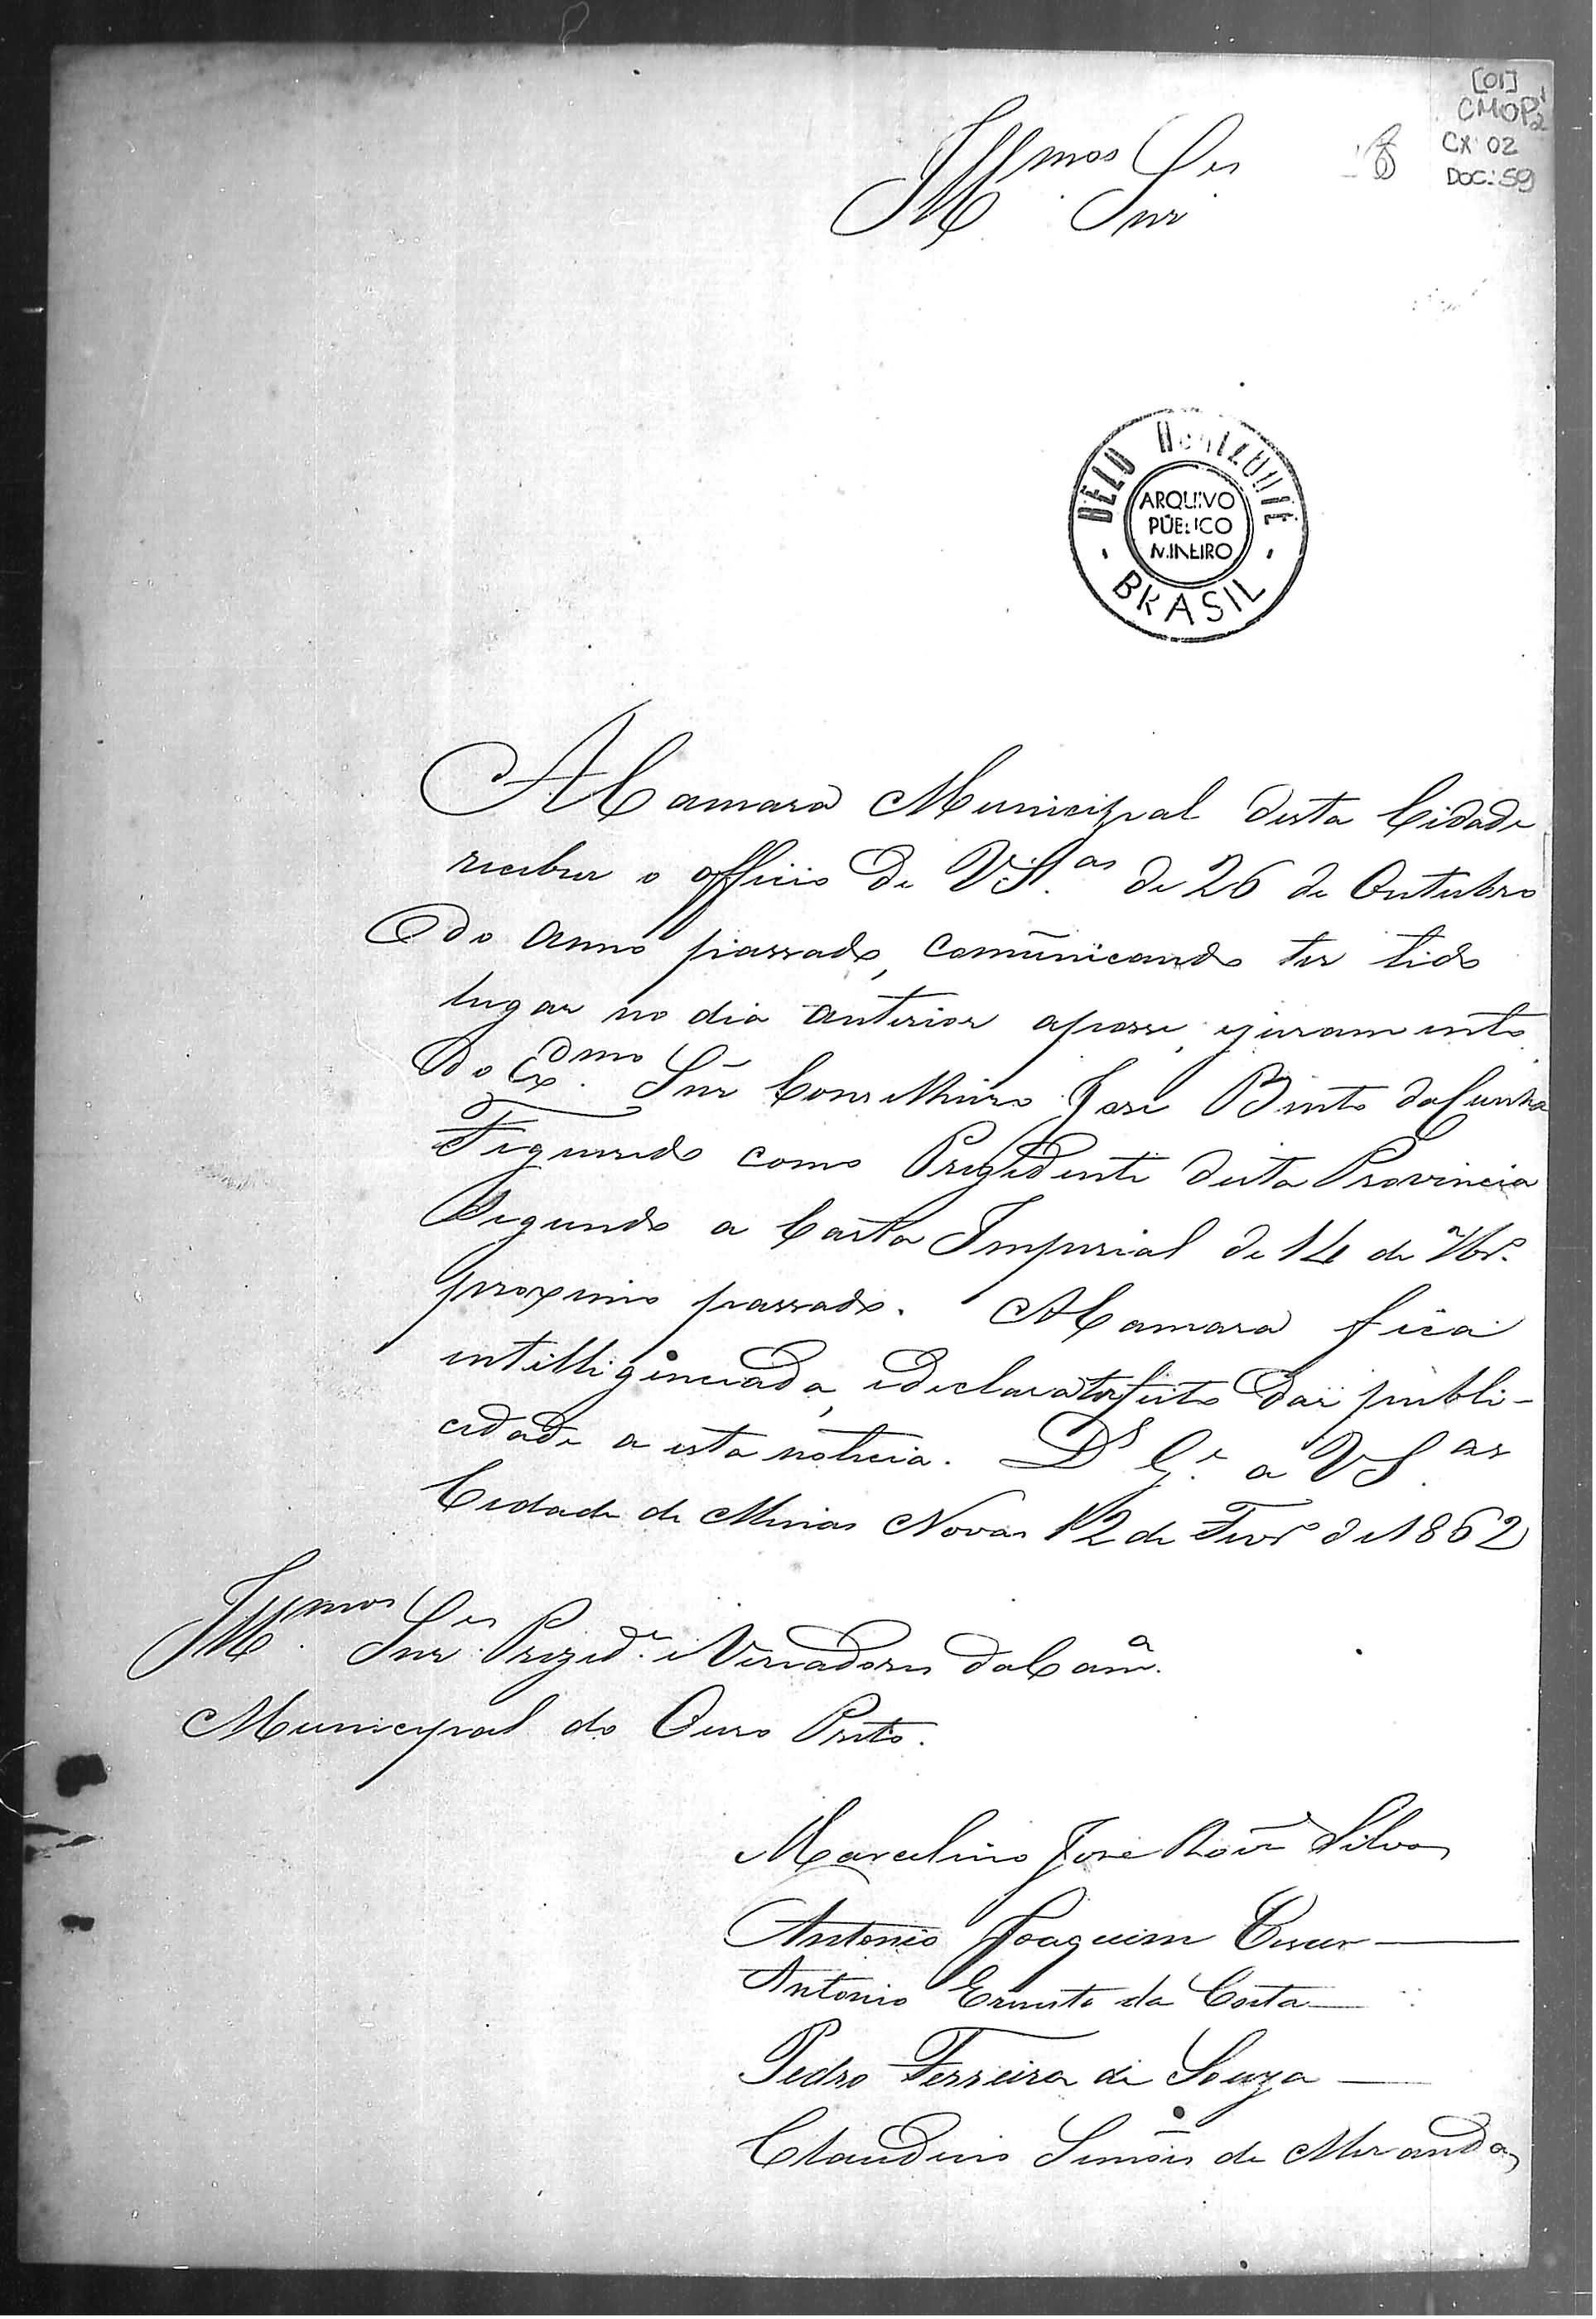 [01]
CMOP 1/2
CX 02
DOC: 59
Illmos Srs
Snr
BELO HORIZONTE
ARQUIVO
PÚBLICO
MINEIRO
BRASIL
A Camara Municipal desta Cidade
recebeu o officio de VS.as de 26 de Outubro
do anno passado, comunicando ter tido
lugar no dia anterior aposse, ejuramento
do Exmo Snr Conselheiro José Bento daCunha
Figueiredo como Prezidente desta Provincia
Segundo a Carta Imperial de 14 de 7br.o
proximo passado. A Camara fica
intelligenciada, edeclara terfeito dar publi-
cidade a esta noticia. Ds Ge. a VS.as
Cidade de Minas Novas 12 de Fevro de 1862
Illmos Snres Prezide. e Vereadores daCam.a
Municipal do Ouro Preto.
Marcelino José Silva
Antonio Joaquim Cesar
Antonio Ernesto da Costa
Pedro Ferreira de Souza
Claudino Simões de Miranda